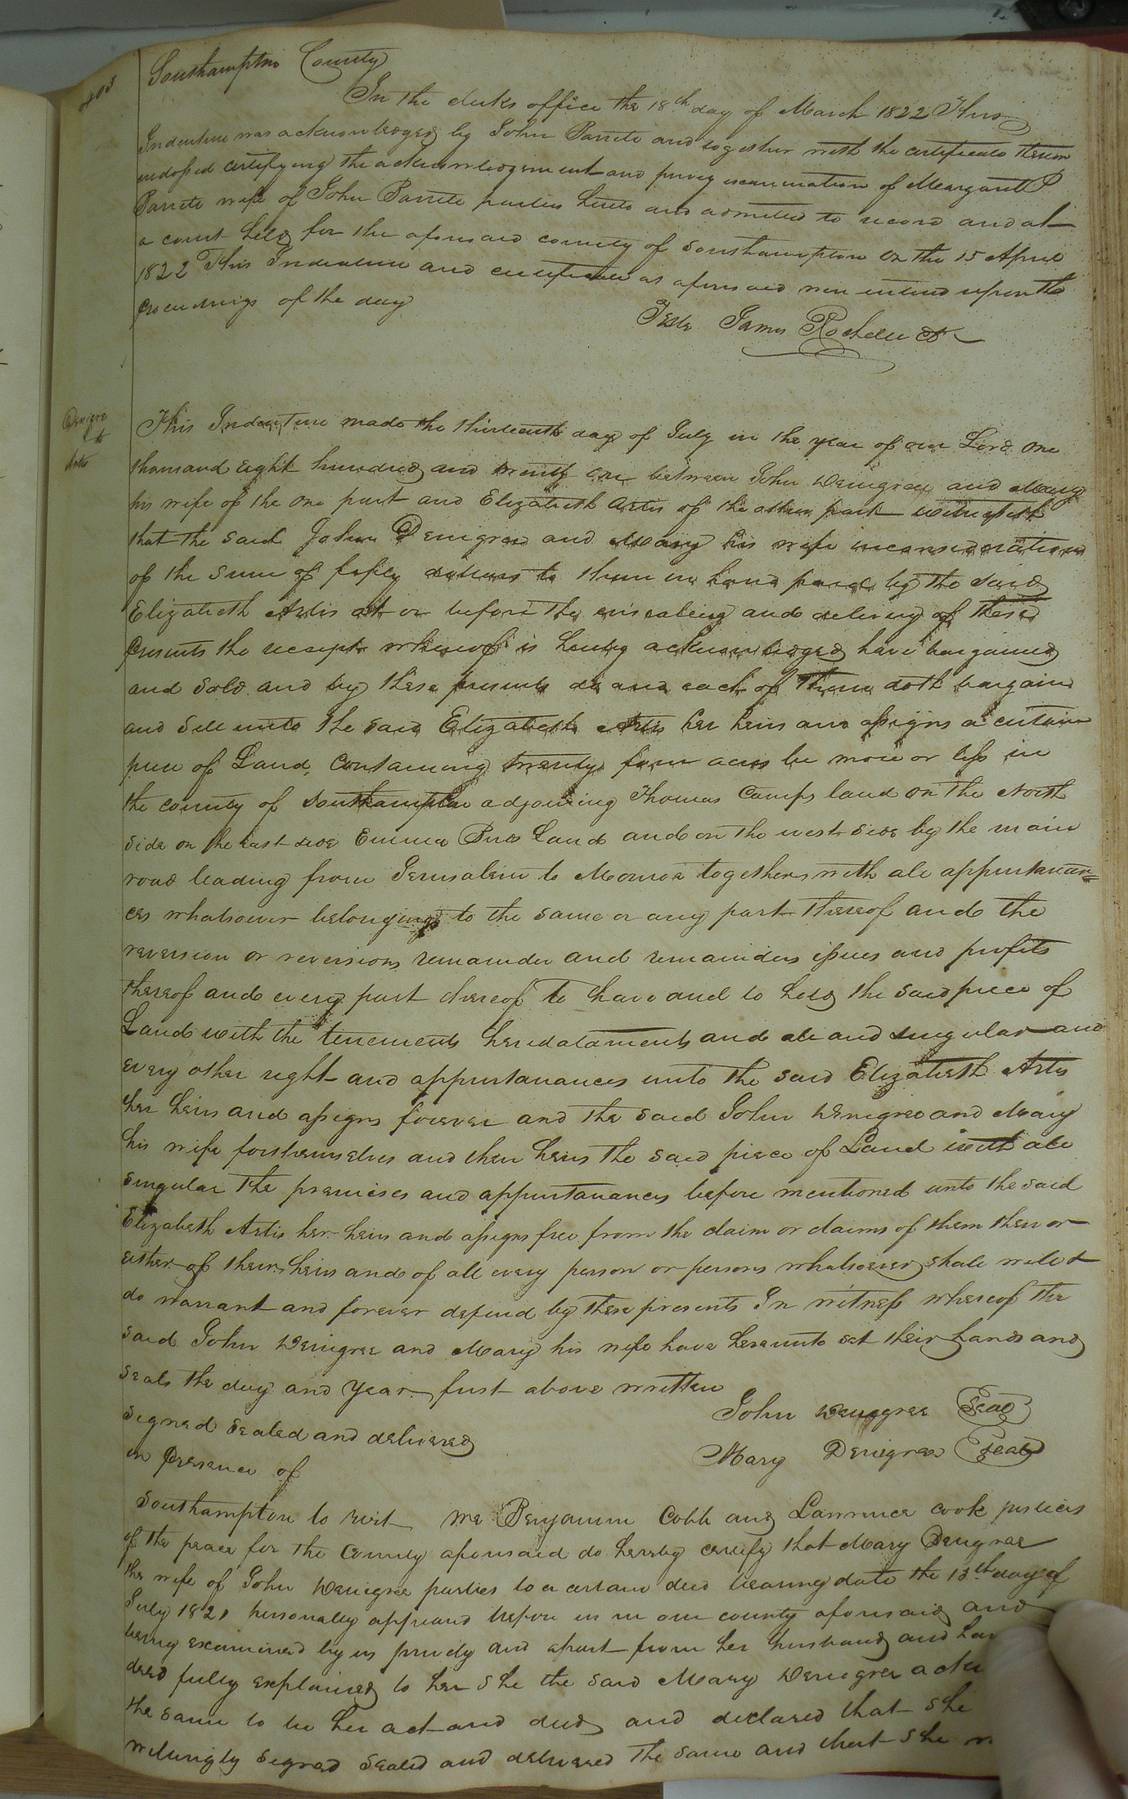 403
Southampton County
In the clerks office the 18th day of March 1822 This
Indenture was acknowledged by John Barrett and together with the certificate thereon
indorsed certifying the acknowledgement and privy examination of Margaret P
Barrett wife of John Barrett parties hereto and admitted to record and at
a court held for the aforesaid county of Southampton on the 15 April
1822 This Indenture and certificate as aforesaid were entered upon the
proceedings of the day
Teste James Rochelle
to
Artis
This Indenture made the thirteenth day of July in the year of our Lord one
thousand eight hundred and twenty one between John Denegree and Mary
his wife of the one part and Elizabeth Artis of the other part witnesseth
that the said John Denegree and Mary his wife in consideration
of the sum of fifty dollars to them in hand paid by the said
Elizabeth Artis at or before the ensealing and delivery of these
presents the receipt whereof is hereby acknowledged have bargained
and Sold and by these presents do and each of them doth bargain
and Sell unto the said Elizabeth Artis her heirs and assigns a certain
piece of Land Containing twenty four acres be more or less in
the county of Southampton adjoining Thomas Camps land on the North
side on the east side Land and on the west side by the main
road leading from Jerusalem to Monroe together with all appurtenan=
ces whatsoever belonging to the same or any part thereof and the
reversion or reversions remainder and remainders issues and profits
thereof and every part thereof to have and to hold the said piece of
Land with the tenements heredataments and all and singular and
every other right and appurtanances unto the said Elizabeth Artis
her heirs and assigns forever and the said John Denegree and Mary
his wife for themselves and their heirs the said piece of Land with all
singular the premises and appurtanances before mentioned unto the said
Elizabeth Artis her heirs and assigns free from the claim or claims of them their or
either of their heirs and of all every person or persons whatsoever shall will &
do warrant and forever defend by these presents In witness whereof the
said John Denegree and Mary his wife have hereunto set their hands and
seals the day and year first above written
John Denegree Seal
Signed Sealed and delivered
Mary Denegree Seal
in Presence of
Southampton to wit We Benjamin Cobb and Lawrence Cook justices
of the peace for the County aforesaid do hereby certify that Mary Denegree
the wife of John Denegree parties to a certain deed bearing date the 13th day of
July 1821 personally appeard before us in our county aforesaid and
being examined by us privily and apart from her husband and
deed fully explained to her she the said Mary Denegree
the same to be her act and deed and declared that she
willingly signed sealed and delivered the same and that she